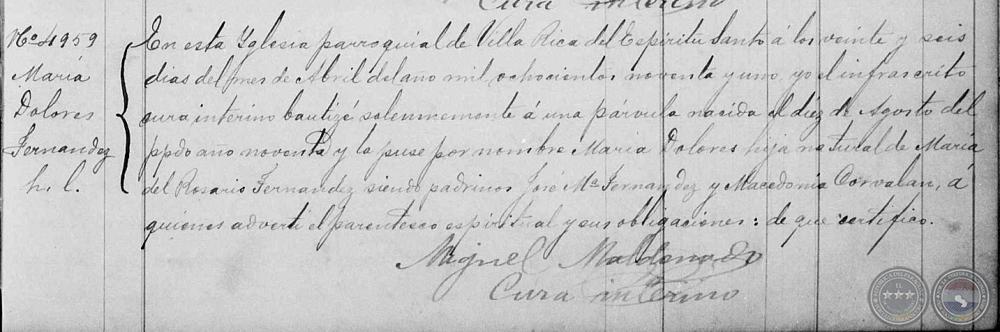 Cura interino
No 4959
María
Dolores
Fernandez
h. l.
En esta Yglesia parroquial de Villa Rica del Espiritu Santo á los veinte y seis
dias del mes de Abril del año mil, ochocientos noventa y uno, yo el infrascrito
cura interino bautizé solemnemente á una párvula nacida el diez de Agosto del
ppdo año noventa y la puse por nombre María Dolores hija natural de María
del Rosario Fernandez siendo padrinos José Ma Fernandez y Macedonia Corvalan, á
quienes advertí el parentesco espiritual y sus obligaciones: de que certifico.
Miguel Maldonado
Cura interino